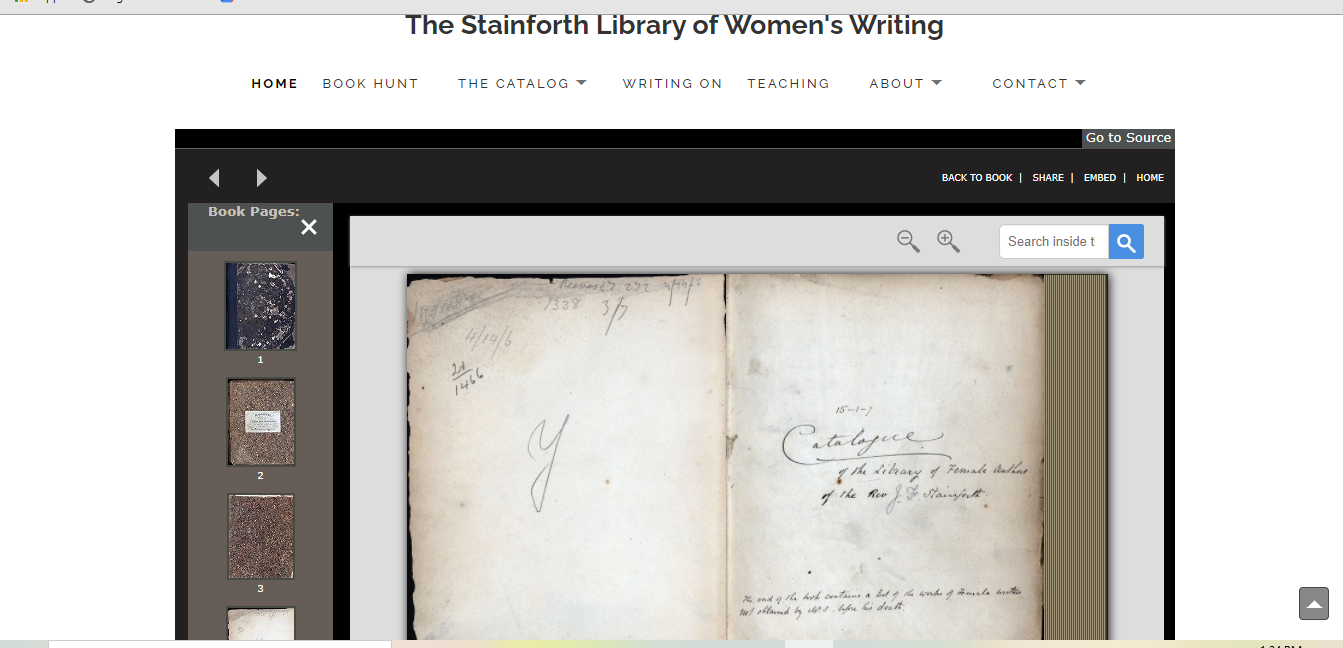 The Stainforth Library of Women's Writing
HOME BOOK HUNT THE CATALOG WRITING ON TEACHING ABOUT CONTACT
Go to Source
BACK TO BOOK | SHARE | EMBED | HOME
Book Pages:
Search inside t
1
2
3
1338 3/7
4/14/6
1466
Y
15-1-7
Catalogue
of the Library of Female Authors
of the Rev J. F. Stainforth
The end of the book contains a list of the works of Female writers
not obtained by Mr S. before his death.